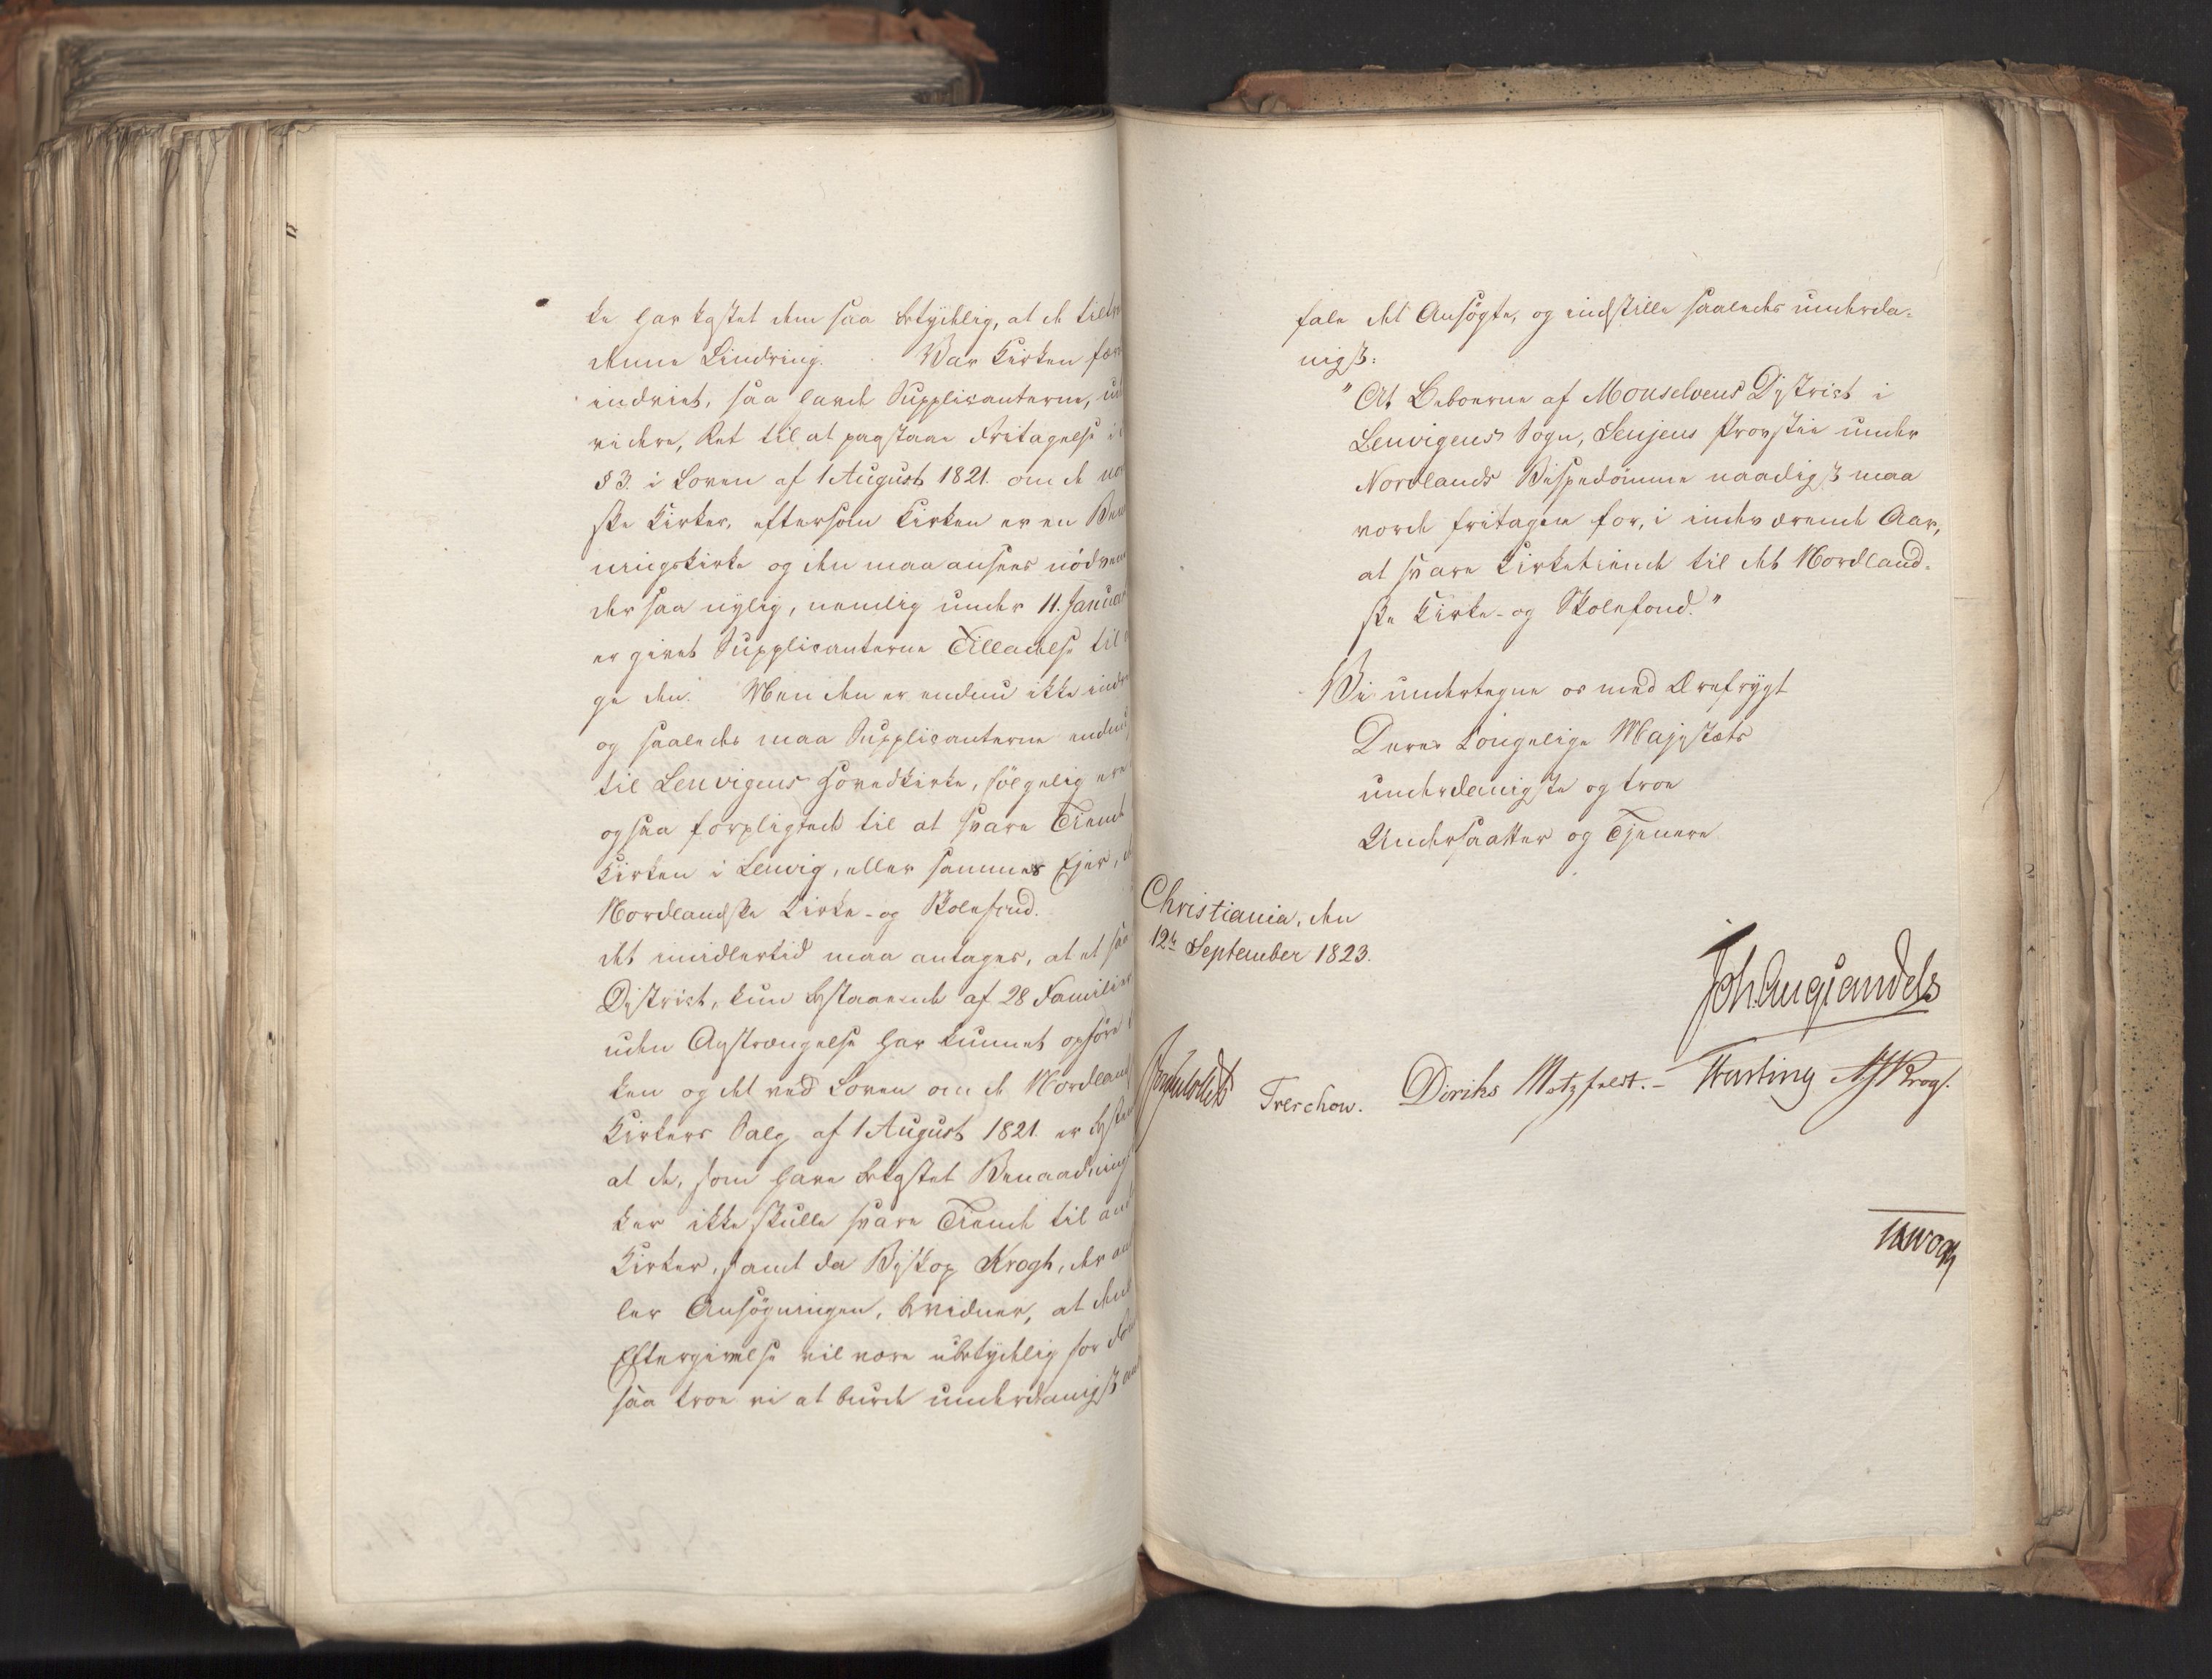 ke har kostet dem saa betydelig, at de tiltr
denne Lindring. Var Kirken fær
indviet, saa havde Supplicanterne, ud
videre, Ret til at paastaae Fritagelse i
§ 3. i Loven af 1 August 1821. om de no
ske Kirker, eftersom Kirken er en Ben
ningskirke og den maa ansees nödven
der saa nylig, nemlig under 11. Januar
er givet Supplicanterne Tilladelse til
ge den. Men den er endnu ikke indv
og saaledes maa Supplicanterne endnu
til Lenvigens Hovedkirke, fölgelig ere
ogsaa forpligtede til at svare Tiende
Kirken i Lenvig, eller sammes Ejer, d
Nordlandske Kirke- og Skolefond.
det imidlertid maa antages, at et saa
District, kun bestaaende af 28 Familier
uden Anstrængelse har kunnet opföre
ken og det ved Loven om de Nordland
Kirkers Salg af 1 August 1821. er beste
at de, som have bekostet Benaadning
ker ikke skulle svare Tiende til and
Kirker, samt da Biskop Krogh, der an
ler Ansögningen, bevidner, at denne
Eftergivelse vil være ubetydelig for Fon
saa troe vi at burde underdanigst an
fale det Ansögte, og indstille saaledes underda-
nigst:
"At Beboerne af Monselvens District i
Lenvigens Sogn, Senjens Provstie under
Nordlands Bispedömme naadigst maa
vorde fritagne for, i indeværende Aar,
at svare Kirketiende til det Nordland-
ske Kirke- og Skolefond."
Vi undertegne os med Ærefrygt
Deres Kongelige Majestæts
underdanigste og troe
Undersaatter og Tjenere
Christiania, den
12te September 1823.
Joh. Aug. Sandels
Sommerhielm Treschow. Diriks Motzfeldt. Fasting J Krog.